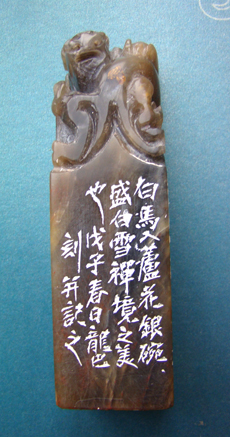 白馬入蘆花銀碗
盛白雪禪境之美
也戊子春日龍巴
刻并記之